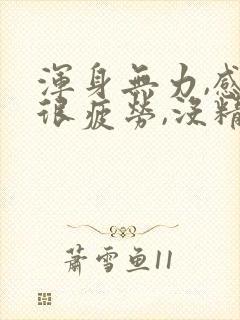 渾身無力,感
很疲勞,沒精
蕭雪魚11